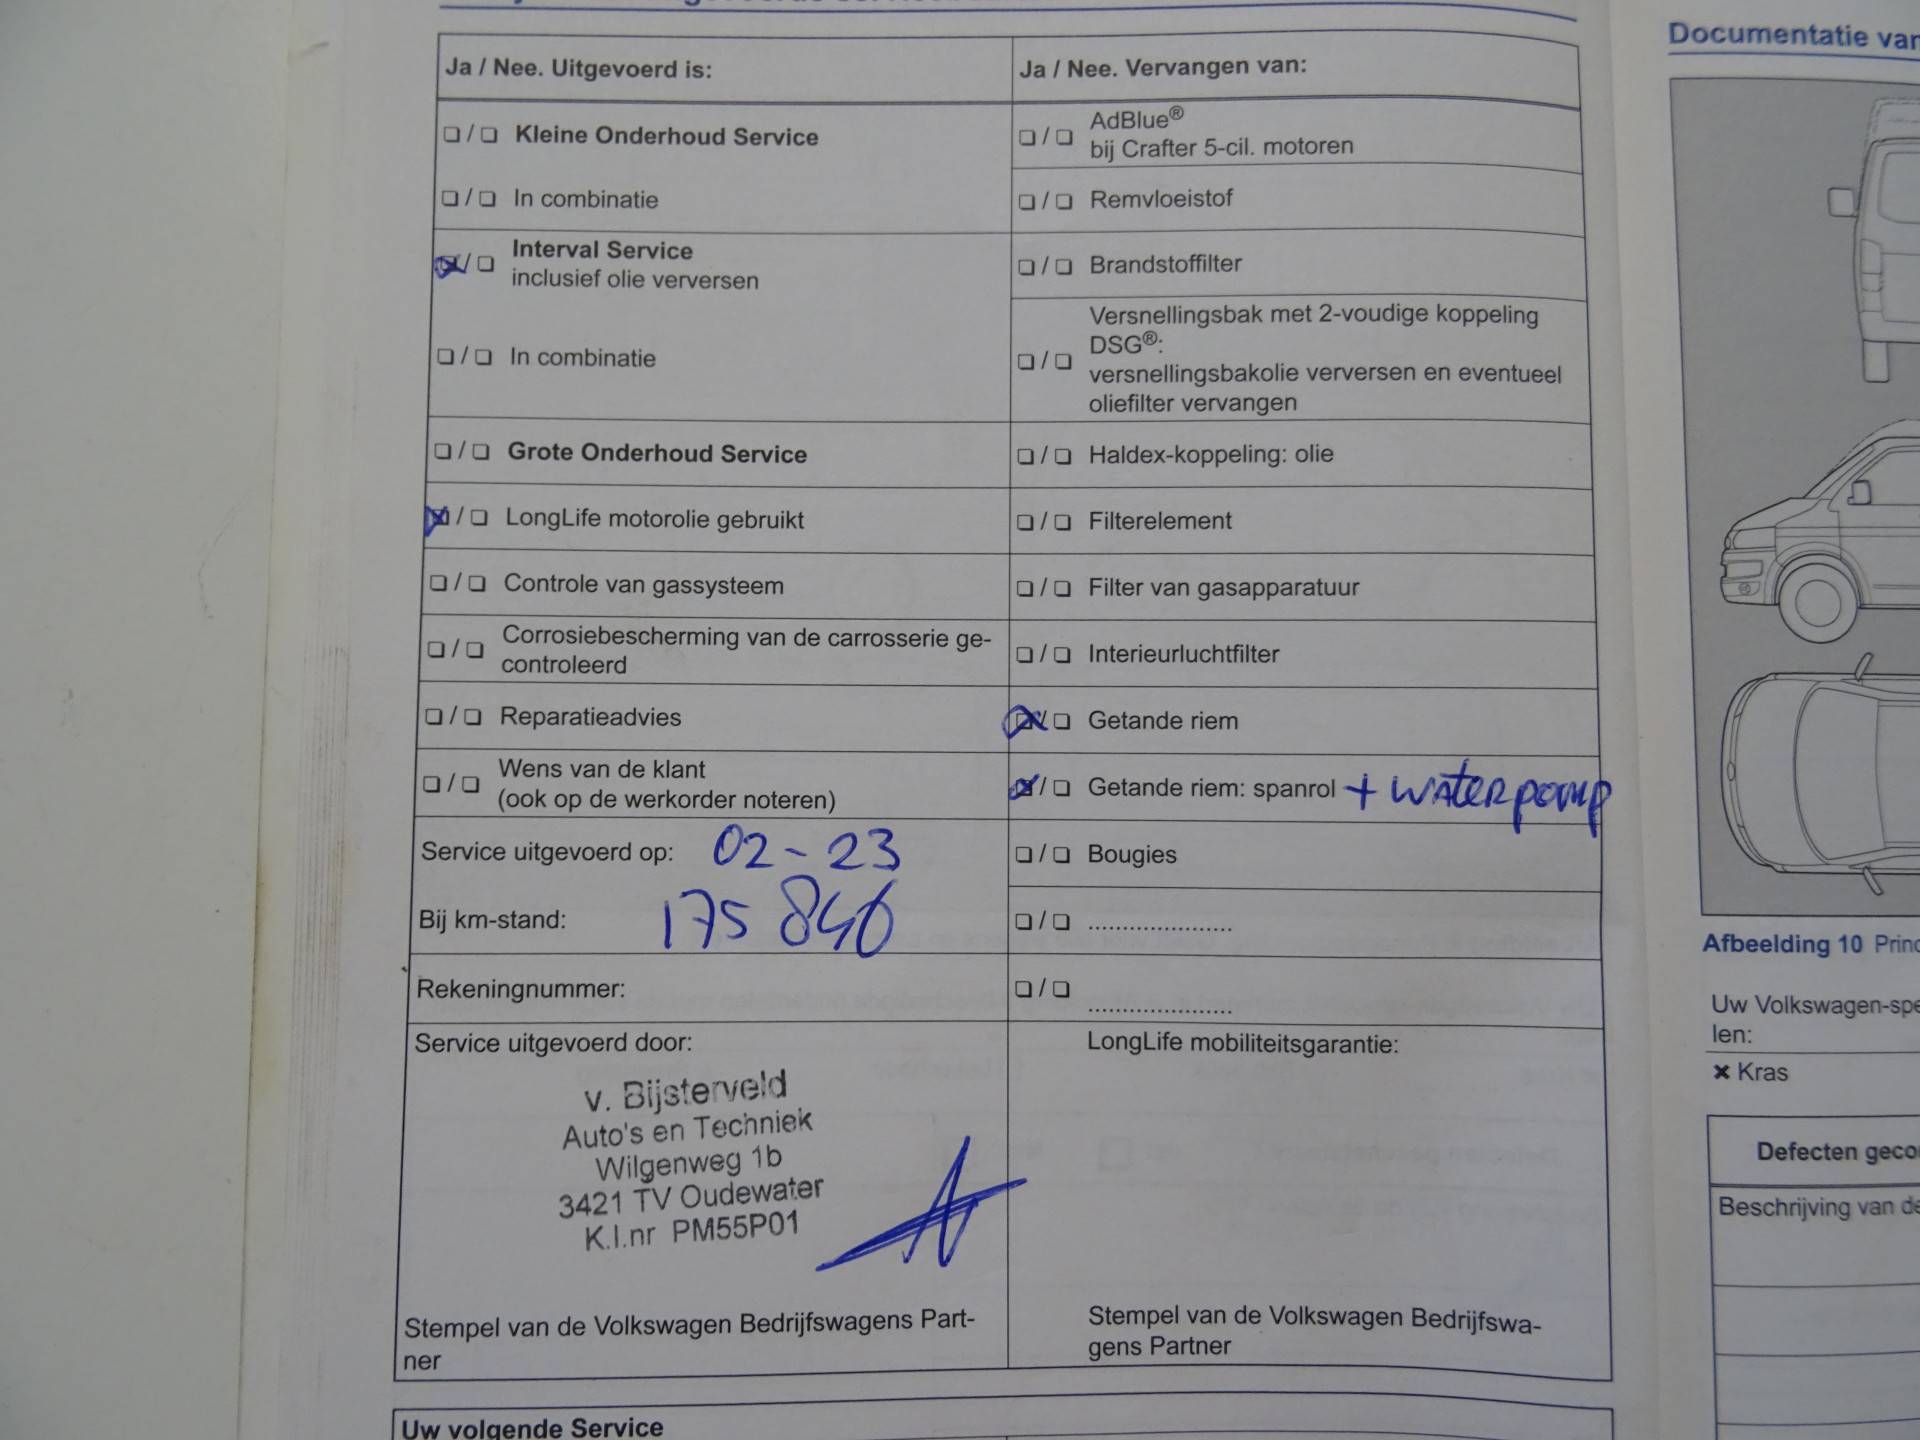 Ja / Nee. Uitgevoerd is:
❑ / ❑ Kleine Onderhoud Service
❑ / ❑ In combinatie
☒ / ❑ Interval Service
inclusief olie verversen
❑ / ❑ In combinatie
❑ / ❑ Grote Onderhoud Service
☒ / ❑ LongLife motorolie gebruikt
❑ / ❑ Controle van gassysteem
❑ / ❑ Corrosiebescherming van de carrosserie ge-
controleerd
❑ / ❑ Reparatieadvies
❑ / ❑ Wens van de klant
(ook op de werkorder noteren)
Service uitgevoerd op: 02-23
Bij km-stand: 175 846
Rekeningnummer:
Service uitgevoerd door:
v. Bijsterveld
Auto's en Techniek
Wilgenweg 1b
3421 TV Oudewater
K.I.nr PM55P01
Stempel van de Volkswagen Bedrijfswagens Part-
ner
Ja / Nee. Vervangen van:
❑ / ❑ AdBlue®
bij Crafter 5-cil. motoren
❑ / ❑ Remvloeistof
❑ / ❑ Brandstoffilter
❑ / ❑ Versnellingsbak met 2-voudige koppeling
DSG®:
versnellingsbakolie verversen en eventueel
oliefilter vervangen
❑ / ❑ Haldex-koppeling: olie
❑ / ❑ Filterelement
❑ / ❑ Filter van gasapparatuur
❑ / ❑ Interieurluchtfilter
☒ / ❑ Getande riem
☒ / ❑ Getande riem: spanrol + waterpomp
❑ / ❑ Bougies
❑ / ❑ .....................
❑ / ❑ .....................
LongLife mobiliteitsgarantie:
Stempel van de Volkswagen Bedrijfswa-
gens Partner
Uw volgende Service
Documentatie van
Afbeelding 10 Princ
Uw Volkswagen-spe
len:
✖ Kras
Defecten geco
Beschrijving van de